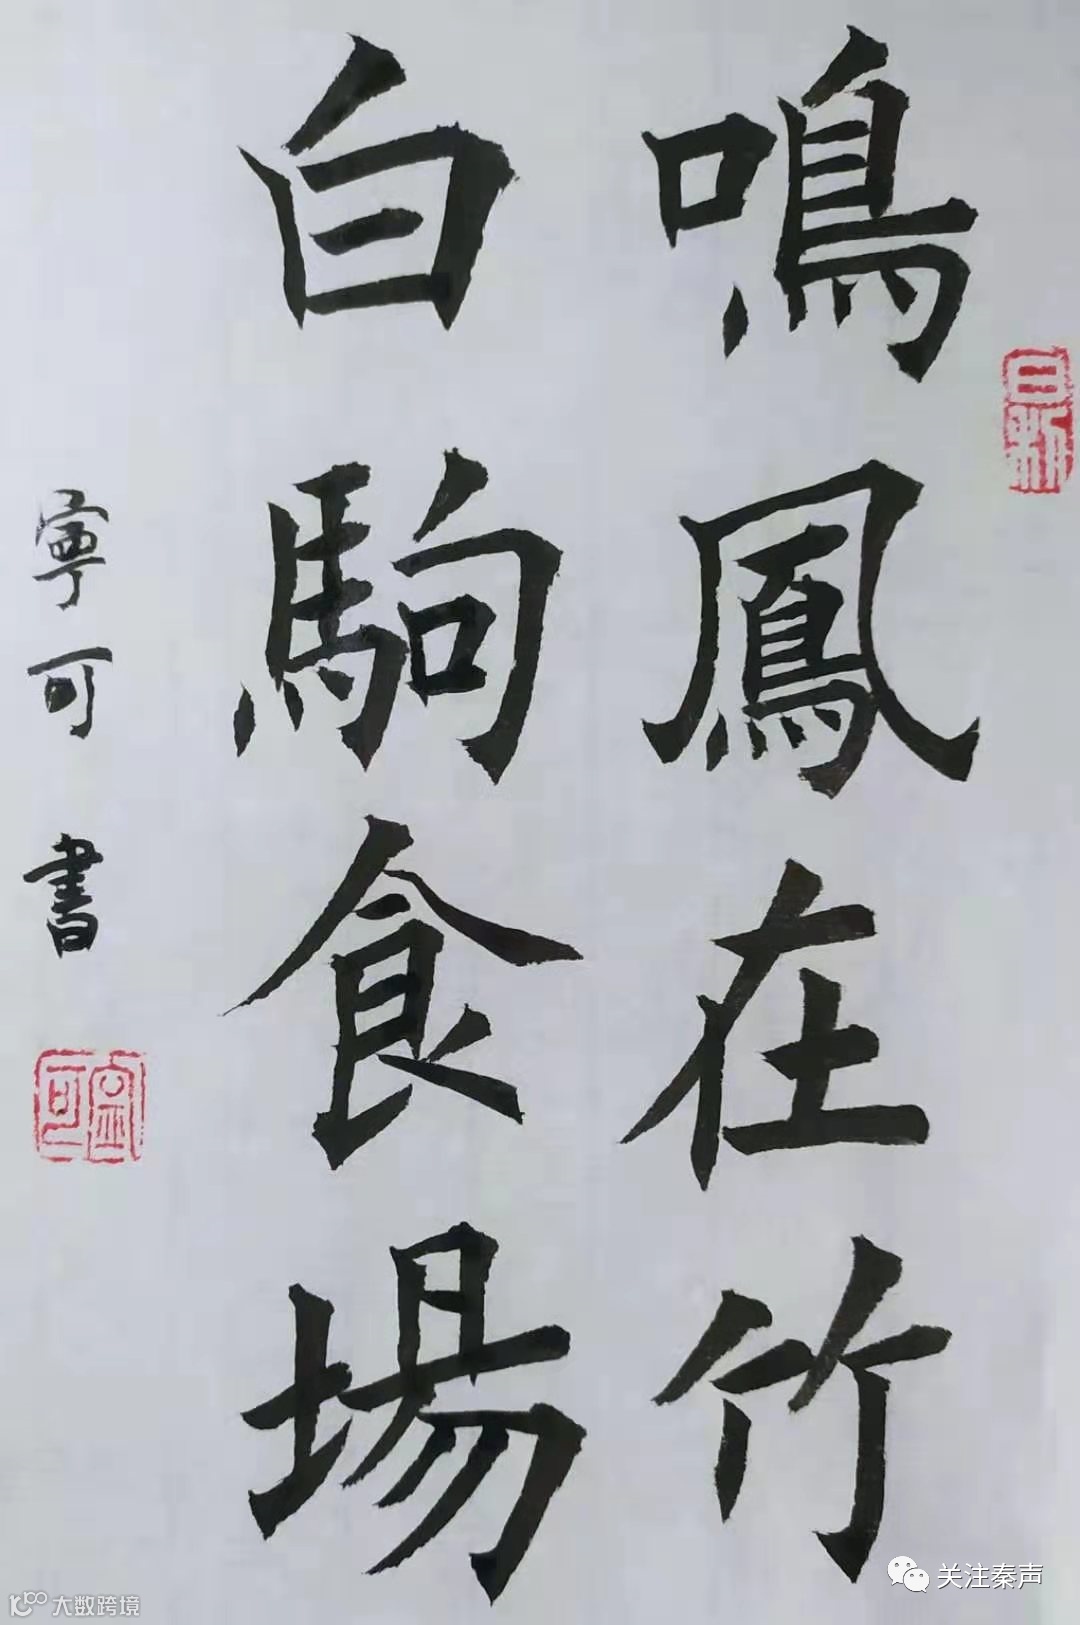 鳴鳳在竹
白駒食場
寧可書
日新
寧可
关注秦声
大数跨境